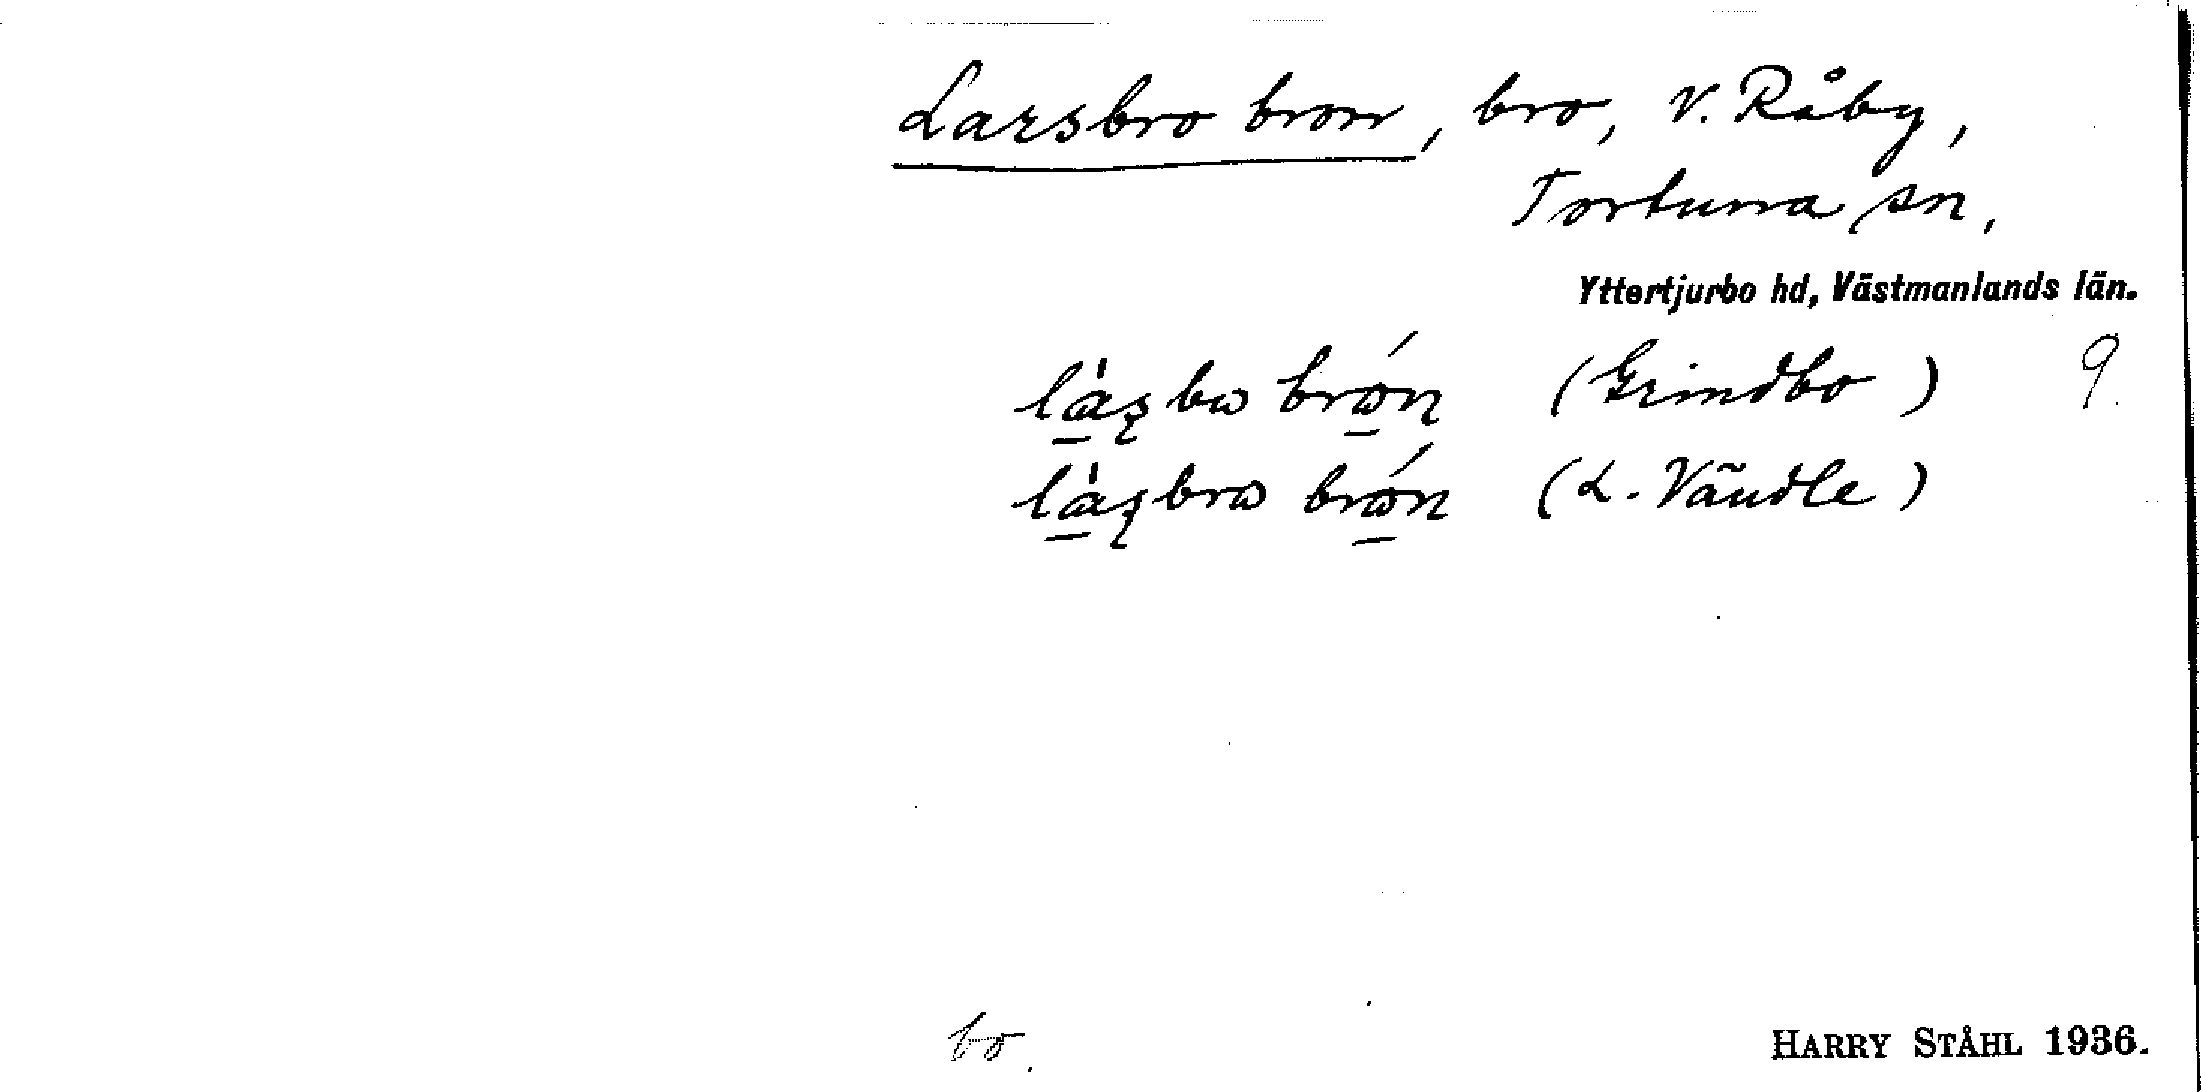 Larsbro bron, bro, V. Råby,
Tortuna sn,
Yttertjurbo hd, Västmanlands län.
làʂbω brώn (Grindbo) 9.
làʂbrω brώn (L. Vändle)
bo.
HARRY STÅHL 1936.